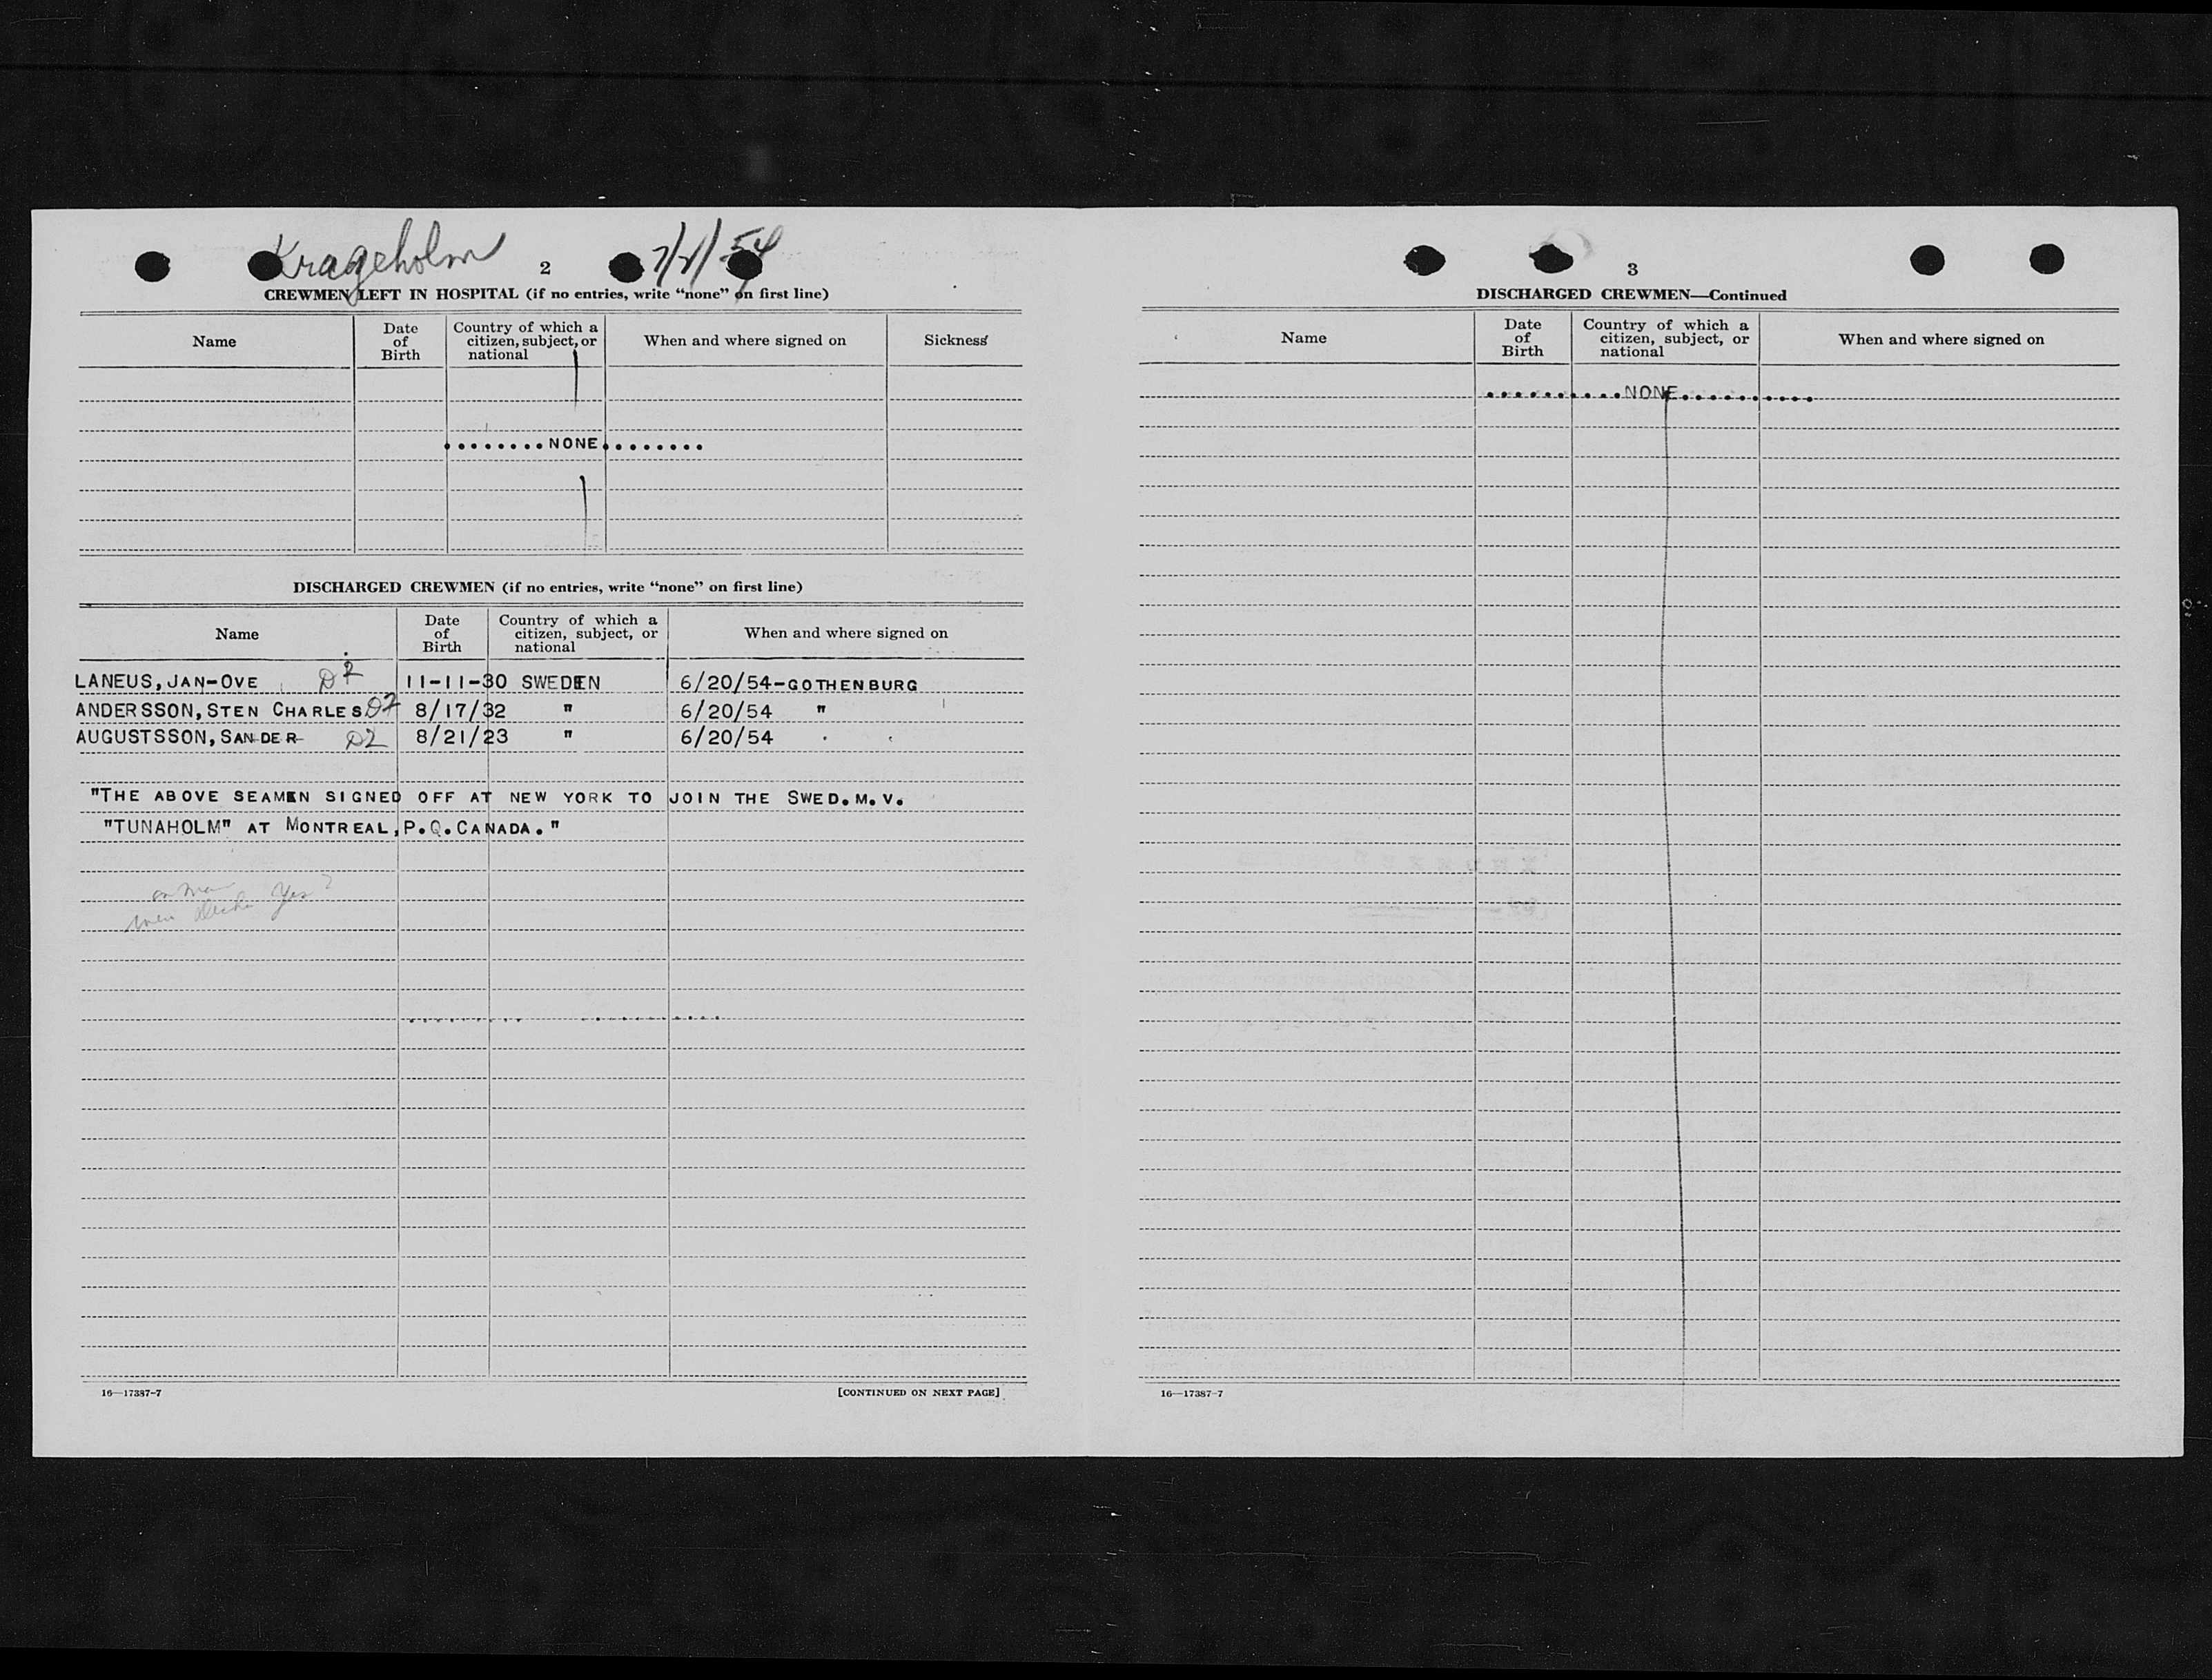 Krageholm 2
CREWMEN LEFT IN HOSPITAL (if no entries, write “none” on first line)
Name Date of Birth Country of which a citizen, subject, or national When and where signed on Sickness
........NONE........
DISCHARGED CREWMEN (if no entries, write “none” on first line)
Name Date of Birth Country of which a citizen, subject, or national When and where signed on
LANEUS, JAN-OVE D2 11-11-30 SWEDEN 6/20/54-GOTHENBURG
ANDERSSON, STEN CHARLES D2 8/17/32 " 6/20/54 "
AUGUSTSSON, SANDER D2 8/21/23 " 6/20/54
"THE ABOVE SEAMEN SIGNED OFF AT NEW YORK TO JOIN THE SWED.M.V.
"TUNAHOLM" AT MONTREAL, P.Q.CANADA."
Yes?
16—17387-7 [CONTINUED ON NEXT PAGE]
3
DISCHARGED CREWMEN—Continued
Name Date of Birth Country of which a citizen, subject, or national When and where signed on
..........NONE...........
16—17387-7